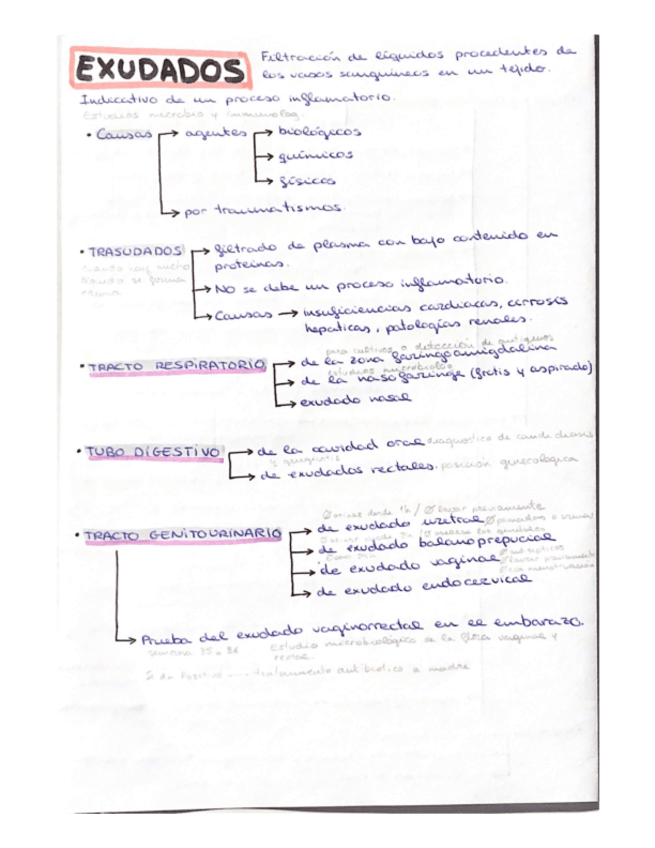 EXUDADOS Filtración de líquidos procedentes de
los vasos sanguíneos en un tejido.
Indicativo de un proceso inflamatorio.
Estudios microbio y inmunolog.
• Causas → agentes → biológicos
→ químicos
→ físicos
→ por traumatismos.
• TRASUDADOS → filtrado de plasma con bajo contenido en
proteínas.
cuando hay mucho
líquido se forma
→ NO se debe un proceso inflamatorio.
→ Causas → insuficiencias cardiacas, cirrosis
hepaticas, patologías renales.
para cultivos o detección de antígenos
• TRACTO RESPIRATORIO → de la zona faringoamigdalina
estudios microbiológ
→ de la nasofaringe (frotis y aspirado)
→ exudado nasal
• TUBO DIGESTIVO → de la cavidad oral diagnostico de candidiasis
y gingivitis
→ de exudados rectales. posición ginecologica
Ø orinar desde 1h / Ø lavar previamente
• TRACTO GENITOURINARIO → de exudado uretral
→ de exudado balanoprepucial
→ de exudado vaginal Ø antisépticos
→ de exudado endocervical
→ Prueba del exudado vaginorrectal en el embarazo.
semana 35 a 36 Estudio microbiológico de la flora vaginal y
rectal.
Si da Positivo ---- tratamiento antibiotico a madre